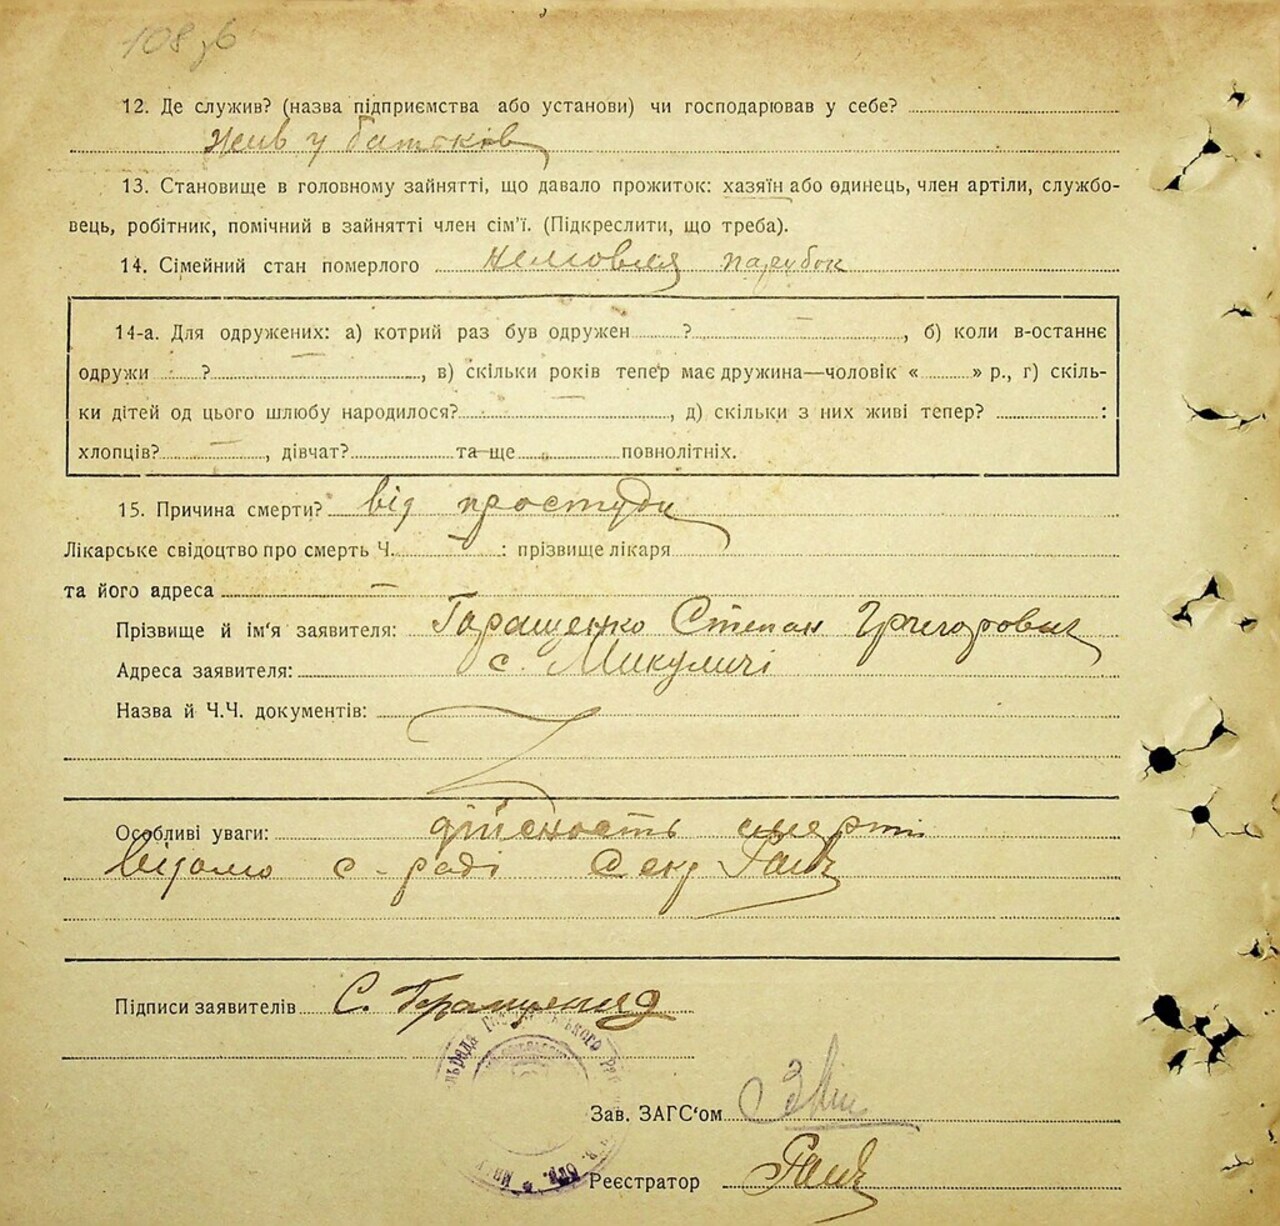 108 зв
12. Де служив? (назва підприємства або установи) чи господарював у себе?
Жив у батьків
13. Становище в головному зайнятті, що давало прожиток: хазяїн або одинець, член артіли, службо-
вець, робітник, помічний в зайнятті член сім'ї. (Підкреслити, що треба).
14. Сімейний стан померлого немовля парубок
14-а. Для одружених: а) котрий раз був одружен ? , б) коли в-останнє
одружи ? , в) скільки років тепер має дружина—чоловік « » р., г) скіль-
ки дітей од цього шлюбу народилося? , д) скільки з них живі тепер? :
хлопців? , дівчат? та ще повнолітніх.
15. Причина смерти? від простуди
Лікарське свідоцтво про смерть Ч. : прізвище лікаря
та його адреса —
Прізвище й ім'я заявителя: Геращенко Степан Григорович
Адреса заявителя: с. Микуличі
Назва й Ч.Ч. документів:
Особливі уваги: дійсность смерті
Відомо с-раді Секр
Підписи заявителів С. Геращенко
Зав. ЗАГС'ом
Реєстратор